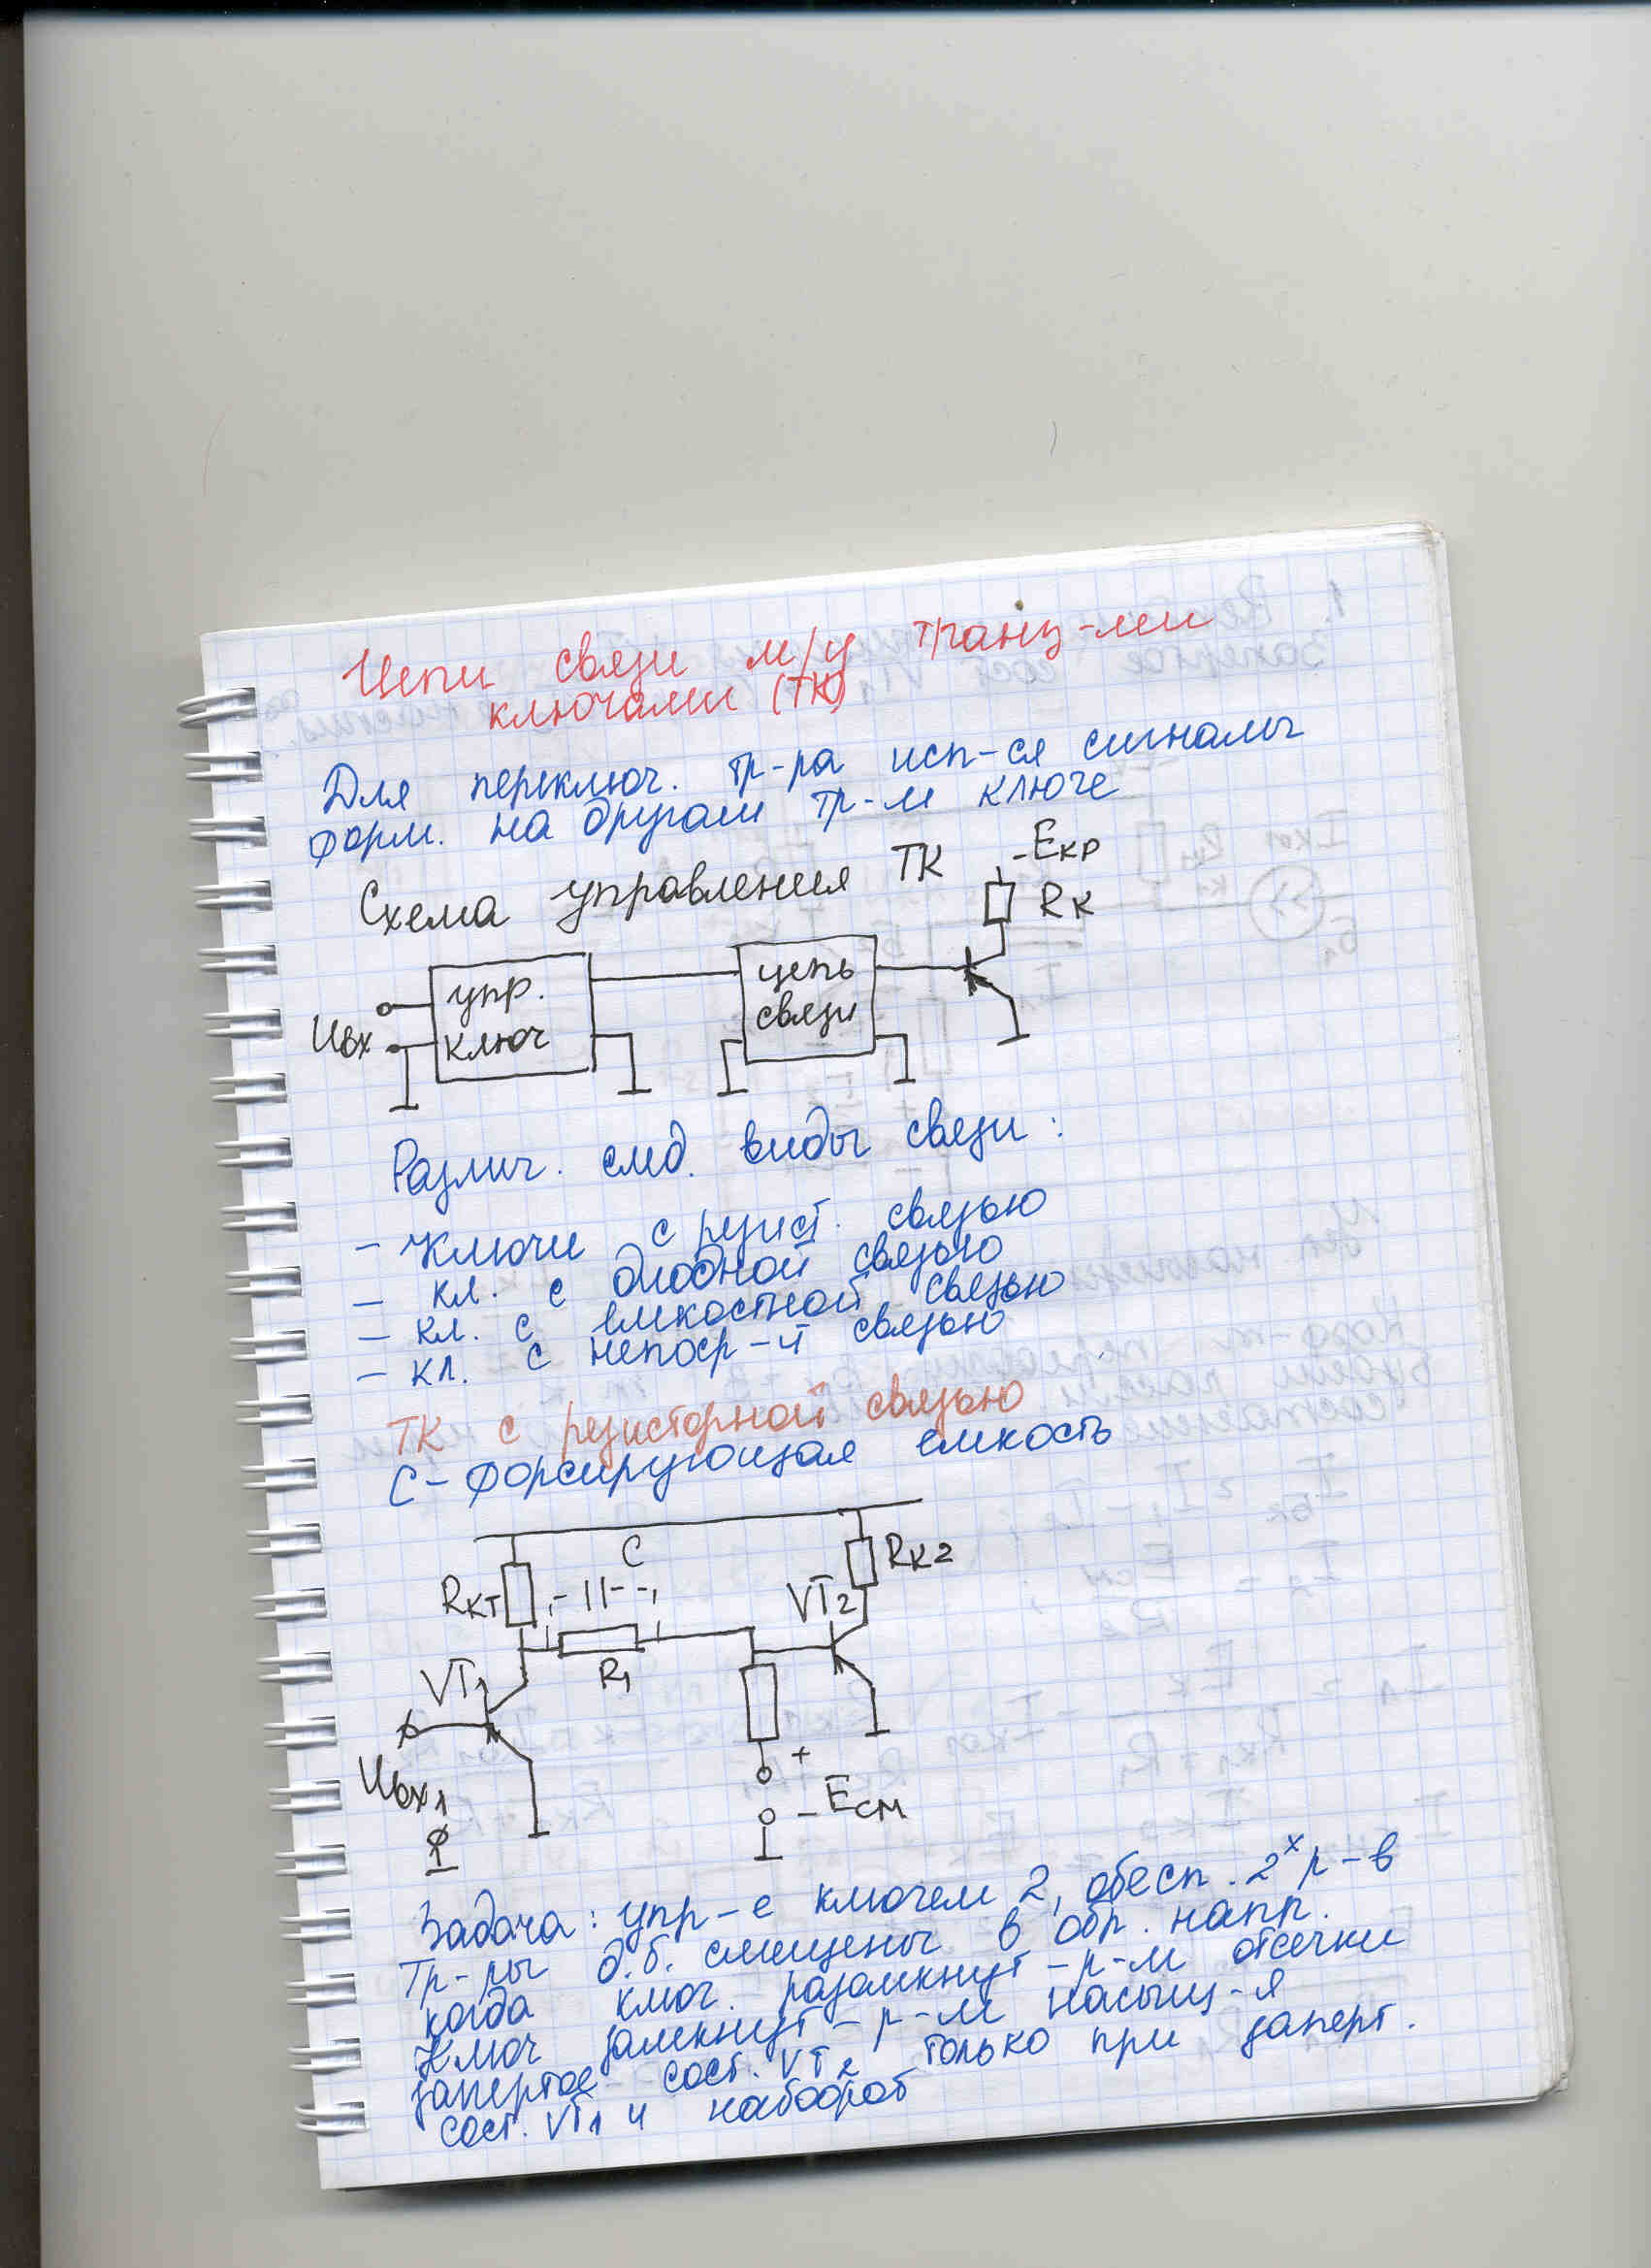 Цепи связи м/у транз-ми
ключами (ТК)
Для переключ. тр-ра исп-ся сигналы
форм. на другом тр-м ключе
Схема управления ТК
-Eкр
Rк
Uвх
упр.
ключ
цепь
связи
Различ. след. виды связи:
- Ключи с резист. связью
- кл. с диодной связью
- кл. с емкостной связью
- кл. с непоср-й связью
ТК с резисторной связью
С - Форсирующая емкость
C
Rкт
Rк2
VT2
R1
VT1
Uвх1
+
- Eсм
Задача: упр-е ключем 2, обесп. 2х р-в
Тр-ры д.б. смещены в обр. напр.
когда ключ. разомкнут - р-м отсечки
Ключ замкнут - р-м насыщ-я
запертое сост. VT2 только при заперт.
сост. VT1 и наоборот